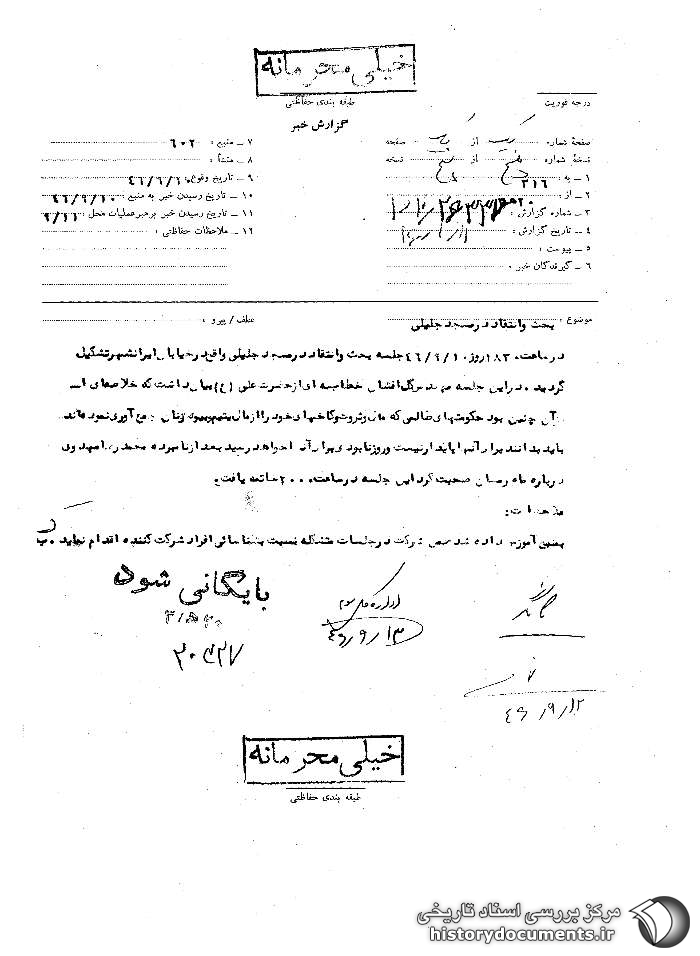 خیلی محرمانه
طبقه بندی حفاظتی
درجه فوریت
گزارش خبر
صفحهٔ شماره یک از یک صفحه
نسخهٔ شماره از نسخه
۱ ـ به ۳۱۶
۲ ـ از :
۳ ـ شماره گزارش :
۴ ـ تاریخ گزارش :
۵ ـ پیوست :
۶ ـ گیرندگان خبر :
۷ ـ منبع : ۶۰۲
۸ ـ منشأ :
۹ ـ تاریخ وقوع :
۱۰ ـ تاریخ رسیدن خبر به منبع ۴۶/۹/۱۰
۱۱ ـ تاریخ رسیدن خبر برهبر عملیات محل : ۹/۱۱
۱۲ ـ ملاحظات حفاظتی :
موضوع : بحث وانتقاد درمسجد جلیلی
عطف / پیرو :
درساعت ۱۸۳۰ روز ۴۶/۹/۱۰ جلسه بحث وانتقاد درمسجد جلیلی واقع درخیابان ایرانشهر تشکیل
گردید . دراین جلسه خطابه ای ازحضرت علی (ع) بیان داشت که خلاصه‌ای از
آن چنین بود حکومتهای ظالمی که مال وثروت وکاخهای خود را ازمال یتیم وبیوه زنان جمع آوری نموده‌اند
باید بدانند برای آنها پایدار نیست وروز نابودی برای آنها خواهد رسید بعد ازنامبرده محمدرضا مهدوی
درباره ماه رمضان صحبت کرد این جلسه درساعت ۲۰۰۰ خاتمه یافت .
ملاحظات :
بمنبع آموزش داده شد ضمن شرکت درجلسات متشکله نسبت بشناسائی افراد شرکت کننده اقدام نماید .
بایگانی شود
اداره کل سوم
۴۶/۹/۱۳
۴۶/۹/۱۲
خیلی محرمانه
طبقه بندی حفاظتی
مرکز بررسی اسناد تاریخی
historydocuments.ir